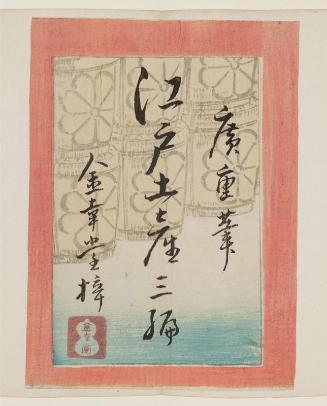 廣重筆
江戸土産三編
金幸堂梓